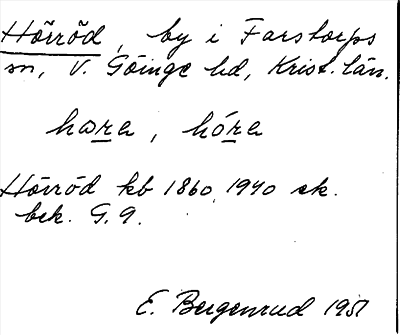 Hörröd, by i Farstorps
sn, V. Göinge hd, Krist. län.
hɷra, hóra
Hörröd kb 1860, 1940 ek.
bek. G. 9.
E. Bergenrud 1951